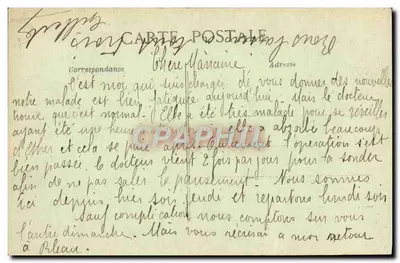 CARTE POSTALE
Correspondance
Adresse
Chère Marraine
C'est moi qui suis chargée de vous donner des nouvelles
notre malade est bien fatiguée aujourd'hui. Mais le docteur
trouve que c'est normal. Elle a été très malade pour se réveiller
ayant été une heure absorbé beaucoup
d'éther et cela se paie après. Autrement l'opération s'est
bien passée. Le docteur vient 2 fois par jour pour la sonder
afin de ne pas salir le pansement. Nous sommes
ici depuis hier soir jeudi et repartons lundi soir
Sauf complication, nous comptons sur vous
l'autre dimanche. Mais vous récrirai a mon retour
à